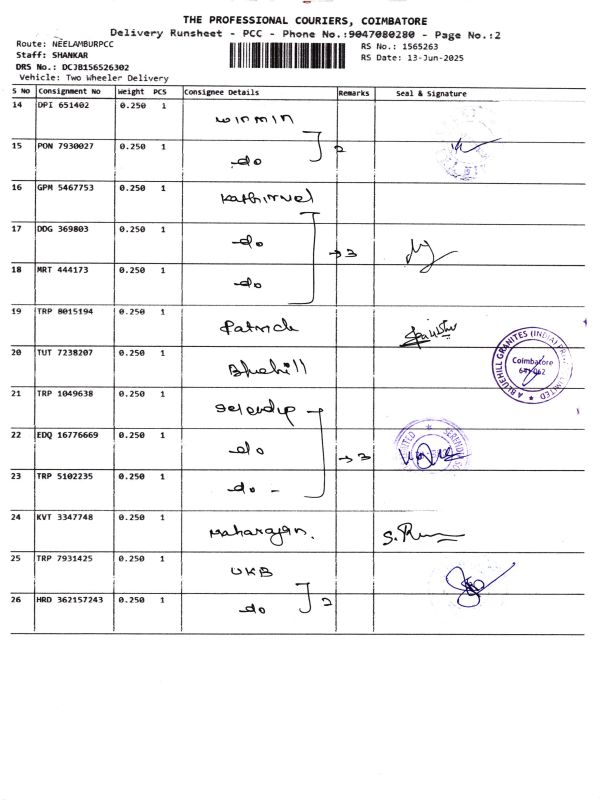 THE PROFESSIONAL COURIERS, COIMBATORE
Delivery Runsheet - PCC - Phone No.:9047080280 - Page No.:2
Route: NEELAMBURPCC
Staff: SHANKAR
DRS No.: DCJB156526302
Vehicle: Two Wheeler Delivery
RS No.: 1565263
RS Date: 13-Jun-2025
S No Consignment No Weight PCS Consignee Details Remarks Seal & Signature
14 DPI 651402 0.250 1 winmin
15 PON 7930027 0.250 1 do 2
16 GPM 5467753 0.250 1 Kathirvel
17 DDG 369803 0.250 1 do → 3
18 MRT 444173 0.250 1 do
19 TRP 8015194 0.250 1 Patrick
20 TUT 7238207 0.250 1 Bluehill
A BLUEHILL GRANITES (INDIA) PRIVATE LIMITED
Coimbatore
641 062
21 TRP 1049638 0.250 1 Serendip
22 EDQ 16776669 0.250 1 do → 3
23 TRP 5102235 0.250 1 do -
24 KVT 3347748 0.250 1 Maharajan.
25 TRP 7931425 0.250 1 UKB
26 HRD 362157243 0.250 1 do 2